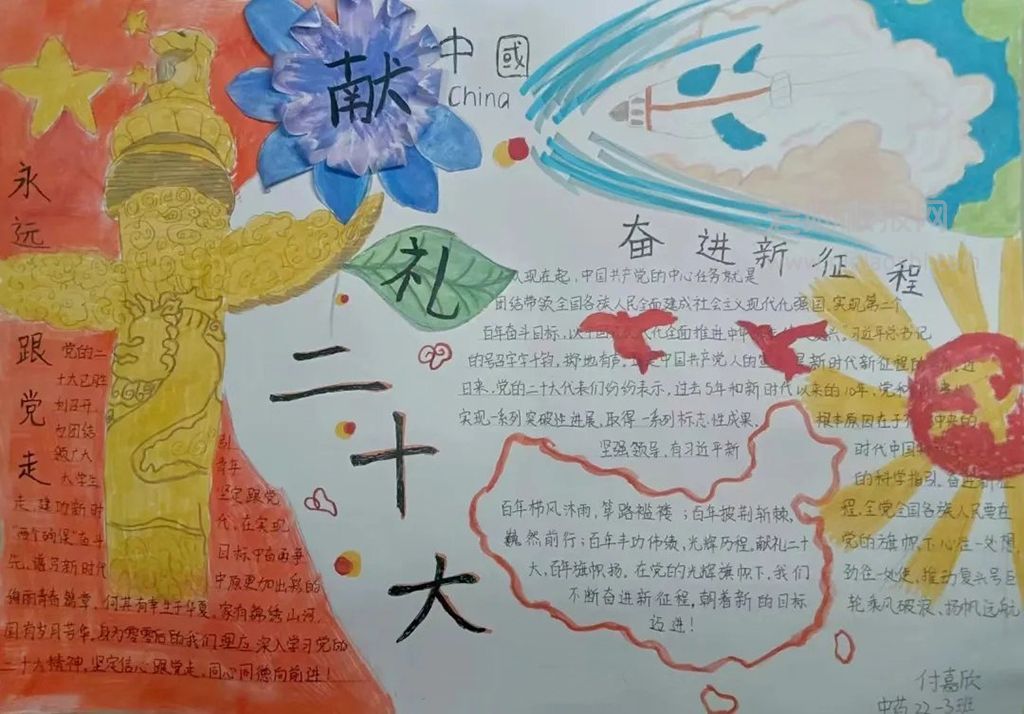 献
中國
China
礼
二
十
大
永
远
跟
党
走
奋进新征程
从现在起,中国共产党的中心任务就是
团结带领全国各族人民全面建成社会主义现代化强国,实现第二个
百年奋斗目标,以中国式现代化全面推进中华
兴。习近平总书记
的号召字字千钧,掷地有声,
中国共产党人的
是新时代新征程的
近
日来,党的二十大代表们纷纷表示,过去5年和新时代以来的10年,党和
实现一系列突破性进展,取得一系列标志性成果,
根本原因在于
中央的
坚强领导,有习近平新
时代中国
的科学指引。奋进新征
程,全党全国各族人民要在
党的旗帜下心往一处想,
劲往一处使,推动复兴号巨
轮乘风破浪、扬帆远航
百年栉风沐雨,筚路褴褛;百年披荆斩棘,
巍然前行;百年丰功伟绩,光辉历程,献礼二十
大,百年旗帜扬。在党的光辉旗帜下,我们
不断奋进新征程,朝着新的目标
迈进!
党的二
十大已胜
利召开,
包团结
领广大
大学生
走,建功新时
"两个确保"奋斗
先,谱写新时代
引
青年
坚定跟党
代,在实现
目标中奋勇争
中原更加出彩的
绚丽青春篇章。何其有幸生于华夏,家有锦绣山河,
国有岁月芳华,身为零零后的我们更应深入学习党的
二十大精神,坚定信心跟党走,同心同德向前进!
付嘉欣
中药22-3班